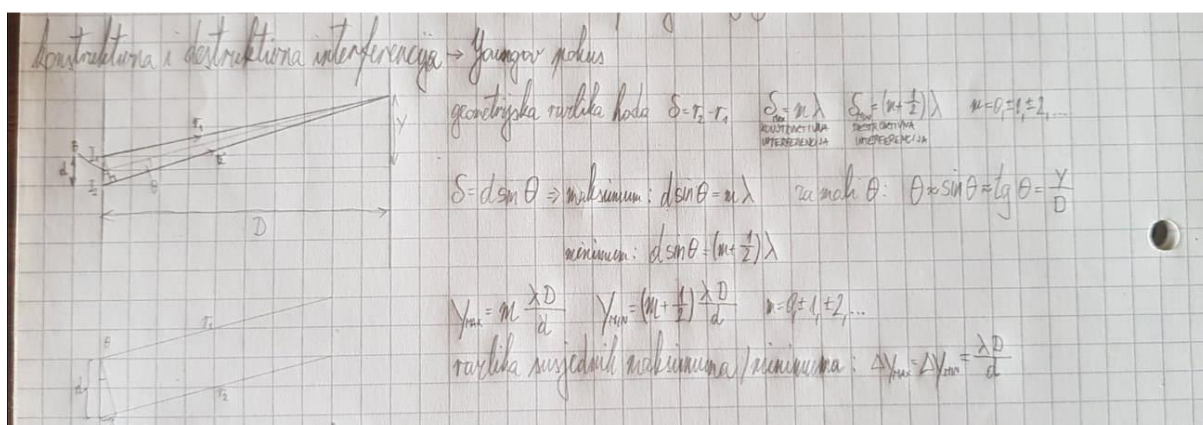 Konstruktivna i destruktivna interferencija → Youngov pokus
geometrijska razlika hoda δ = r₂ - r₁ δmax = mλ δmin = (m + 1/2)λ m = 0, ±1, ±2, ...
KONSTRUKTIVNA INTERFERENCIJA DESTRUKTIVNA INTERFERENCIJA
r₁
r₂
Y
d
θ
D
δ = d sin θ ⇒ maksimum: d sin θ = mλ za mali θ: θ ≈ sin θ ≈ tg θ = Y/D
minimum: d sin θ = (m + 1/2)λ
Ymax = m λD/d Ymin = (m + 1/2) λD/d m = 0, ±1, ±2, ...
razlika susjednih maksimuma/minimuma: ΔYmax = ΔYmin = λD/d
r₁
d
r₂